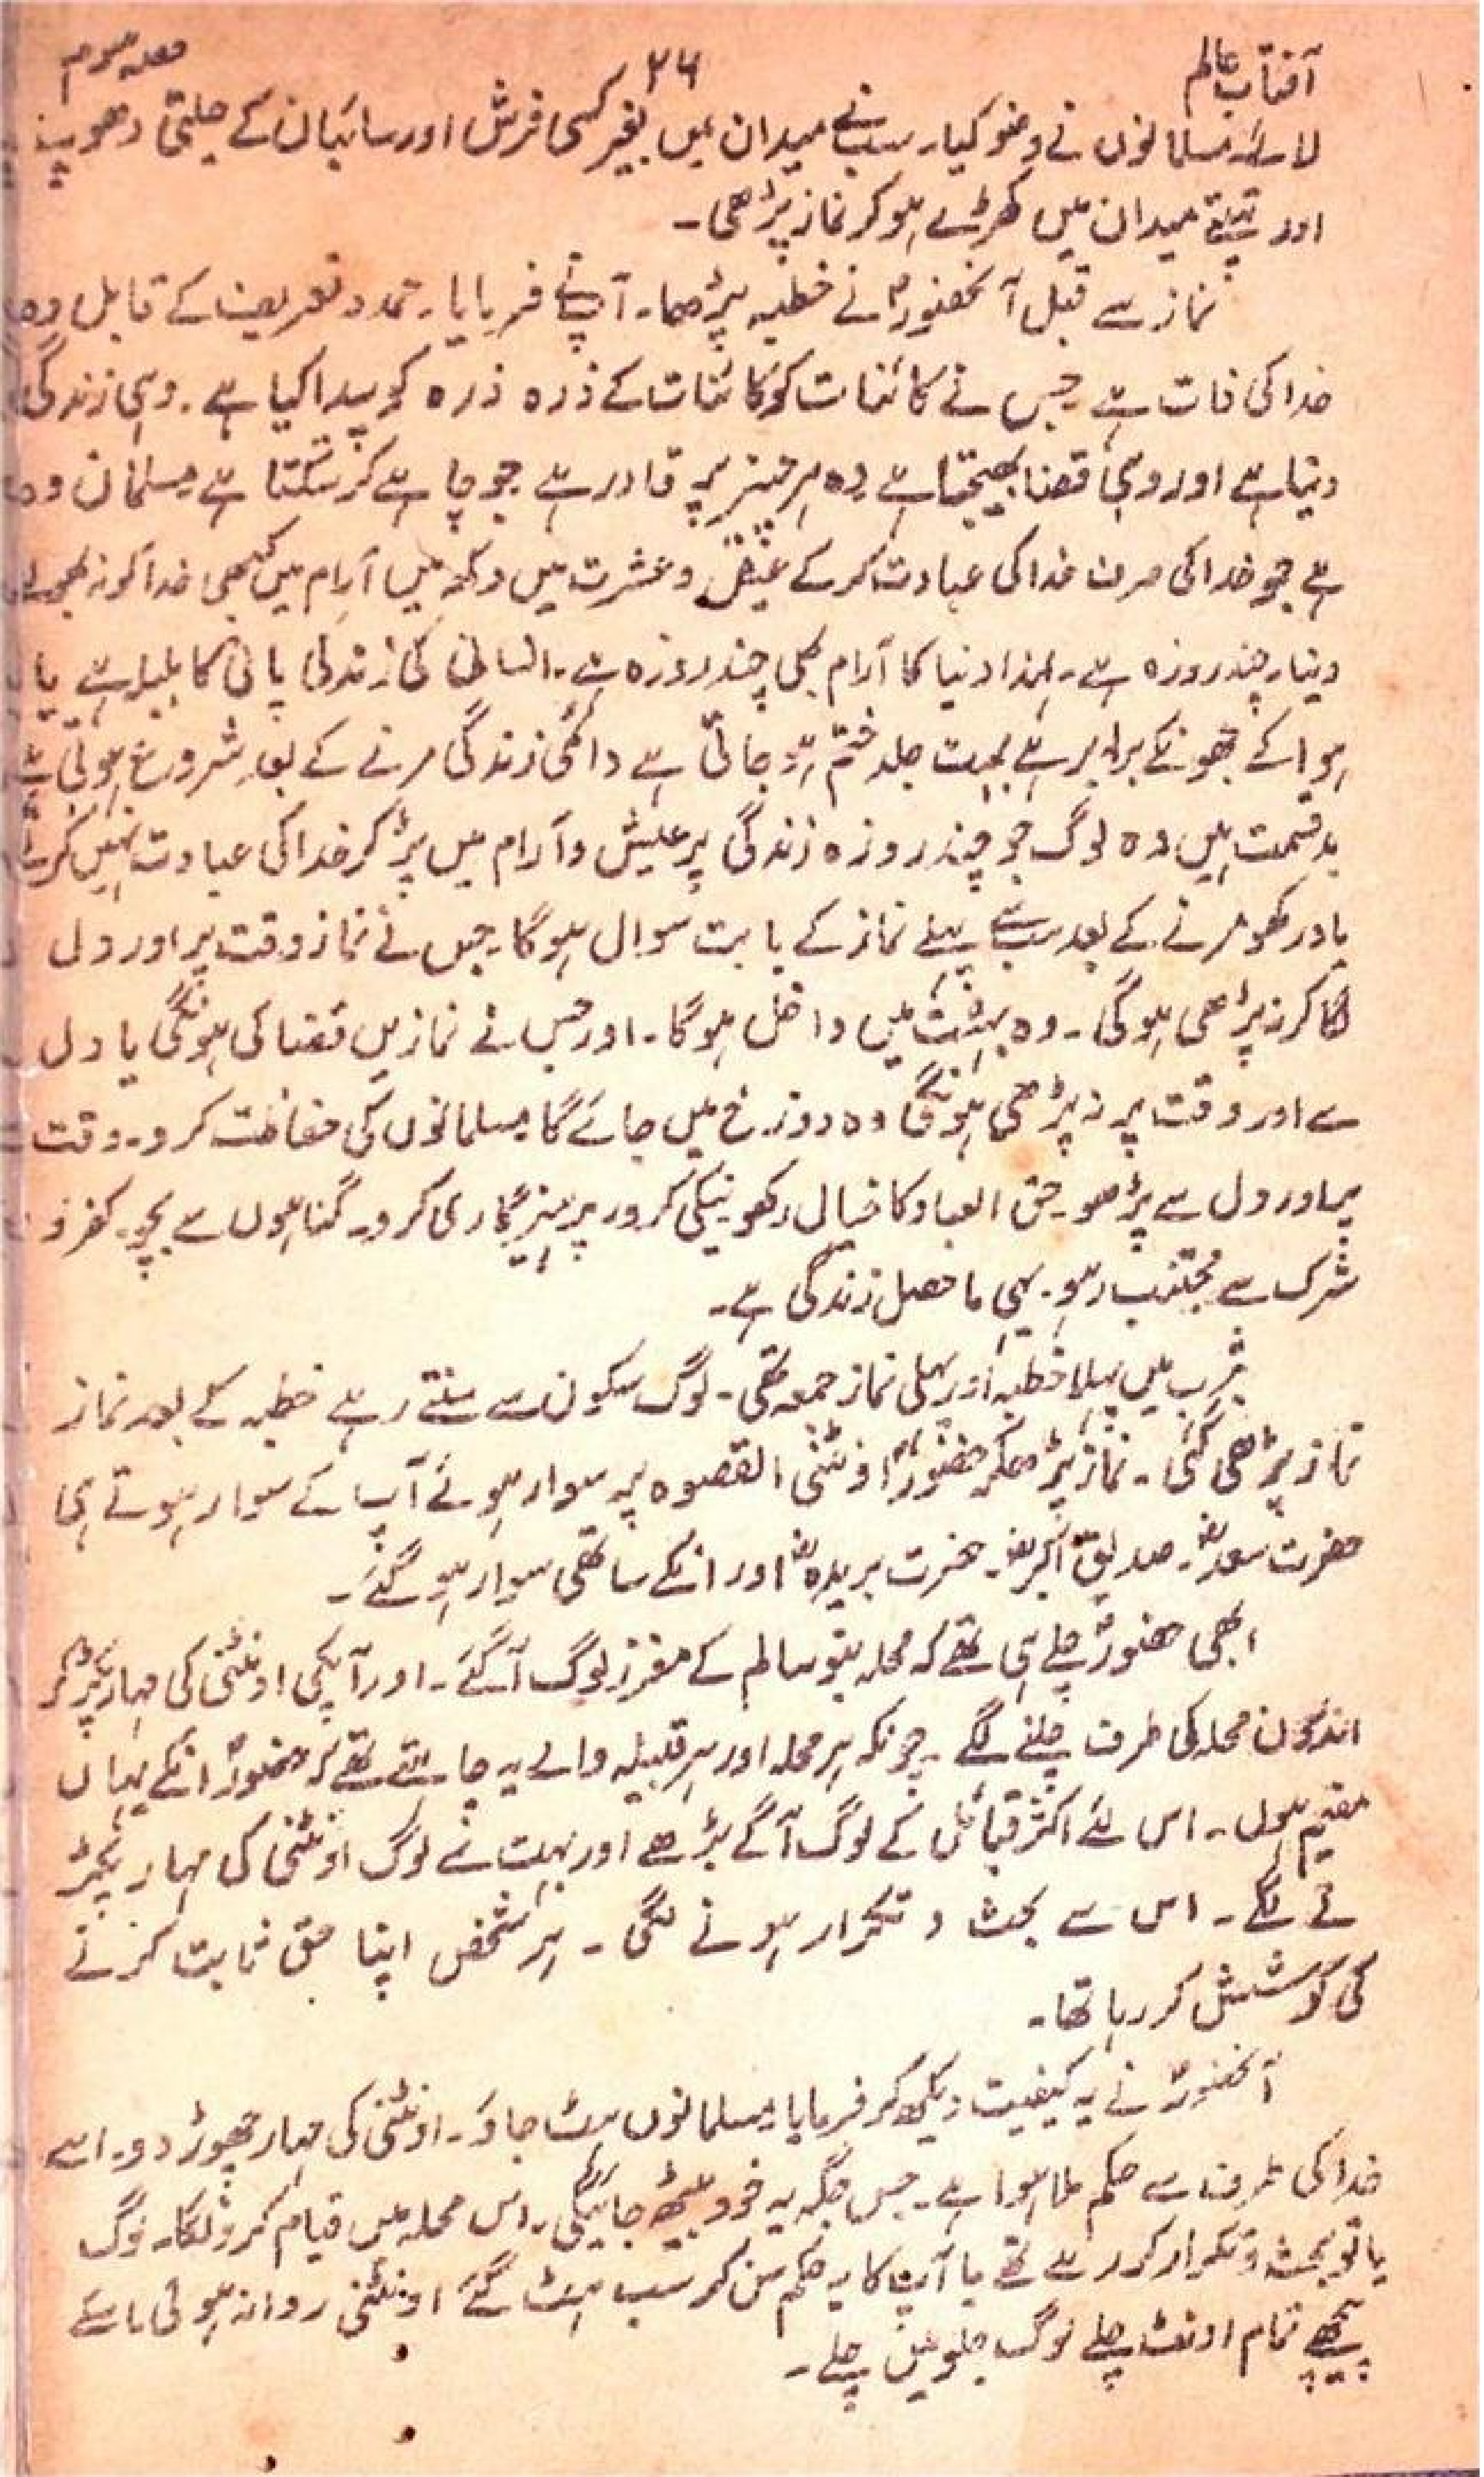 آفتاب عالم ۲۶ حصہ سوم
لائے مسلمانوں نے وضو کیا۔ سب نے میدان میں بغیر کسی فرش اور سائبان کے جلتی دھوپ
اور تپتے میدان میں کھڑے ہو کر نماز پڑھی۔
نماز سے قبل آنحضورؐ نے خطبہ پڑھا۔ آپؐ نے فرمایا۔ حمد و تعریف کے قابل وہ
خدا کی ذات ہے جس نے کائنات کو کائنات کے ذرہ ذرہ کو پیدا کیا ہے۔ وہی زندگی
دیتا ہے اور وہی قضا بھیجتا ہے وہ ہر چیز پر قادر ہے جو چاہے کر سکتا ہے مسلمان وہ
ہے جو خدا کی صرف خدا کی عبادت کرے عیش و عشرت میں دکھ میں آرام میں کبھی خدا کو نہ بھولے
دنیا چند روزہ ہے۔ لہذا دنیا کا آرام بھی چند روزہ ہے۔ انسان کی زندگی پانی کا بلبلہ ہے یا
ہوا کے جھونکے برابر ہے بہت جلد ختم ہو جاتی ہے دائمی زندگی مرنے کے بعد شروع ہوتی ہے
بدقسمت ہیں وہ لوگ جو چند روزہ زندگی پر عیش و آرام میں پڑ کر خدا کی عبادت نہیں کرتے
یاد رکھو مرنے کے بعد سب سے پہلے نماز کے بابت سوال ہو گا۔ جس نے نماز وقت پر اور دل
لگا کر نہ پڑھی ہو گی۔ وہ بہشت میں داخل ہو گا۔ اور جس نے نمازیں قضا کی ہونگی یا دل
سے اور وقت پر نہ پڑھی ہونگی وہ دوزخ میں جائے گا مسلمانوں کی حفاظت کرو۔ وقت
پر اور دل سے پڑھو۔ حق العباد کا خیال رکھو نیکی کرو۔ پرہیزگاری کرو۔ گناہوں سے بچو۔ کفر و
شرک سے مجتنب رہو۔ یہی ماحصل زندگی ہے۔
یثرب میں پہلا خطبہ اور پہلی نماز جمعہ تھی۔ لوگ سکون سے سنتے رہے خطبہ کے بعد نماز
نماز پڑھی گئی۔ نماز پڑھکر حضورؐ اونٹنی القصوہ پر سوار ہوئے آپ کے سوار ہوتے ہی
حضرت سعدؓ۔ صدیق اکبرؓ۔ حضرت بریدہؓ اور انکے ساتھی سوار ہو گئے۔
ابھی حضورؐ چلے ہی تھے کہ محلہ بنو سالم کے معزز لوگ آ گئے۔ اور آپکی اونٹنی کی مہار پکڑ کر
اندرون محلہ کی طرف چلنے لگے۔ چونکہ ہر محلہ اور ہر قبیلہ والے یہ چاہتے تھے کہ حضورؐ انکے یہاں
مقیم ہوں۔ اس لئے اکثر قبائل کے لوگ آگے بڑھے اور بہت سے لوگ اونٹنی کی مہار پکڑ
نے لگے۔ اس سے بحث و تکرار ہونے لگی۔ ہر شخص اپنا حق ثابت کرنے
کی کوشش کر رہا تھا۔
آنحضورؐ نے یہ کیفیت دیکھ کر فرمایا۔ مسلمانوں ہٹ جاؤ۔ اونٹنی کی مہار چھوڑ دو۔ اسے
خدا کی طرف سے حکم ملا ہوا ہے۔ جس جگہ یہ خود بیٹھ جائیگی۔ اس محلہ میں قیام کرونگا۔ لوگ
یا تو بحث و تکرار کر رہے تھے یا آپ کا یہ حکم سن کر سب ہٹ گئے اونٹنی روانہ ہوئی اسکے
پیچھے تمام اونٹ چلے لوگ جلو میں چلے۔